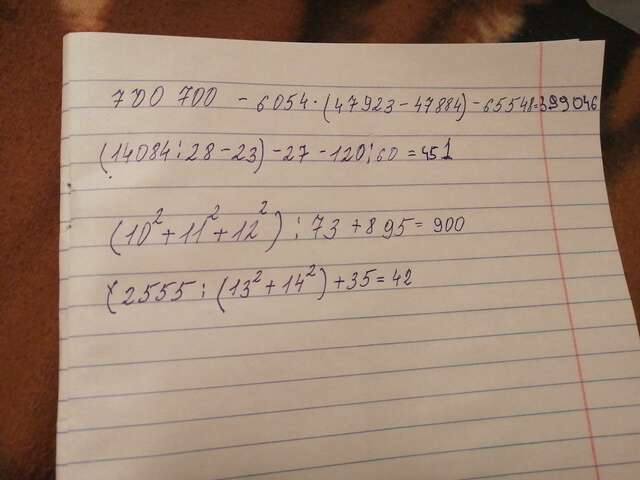 700 700 - 6054 · (47923 - 47884) - 65548 = 399046
(14084 : 28 - 23) - 27 - 120 : 60 = 451
(10² + 11² + 12²) : 73 + 895 = 900
(2555 : (13² + 14²) + 35 = 42